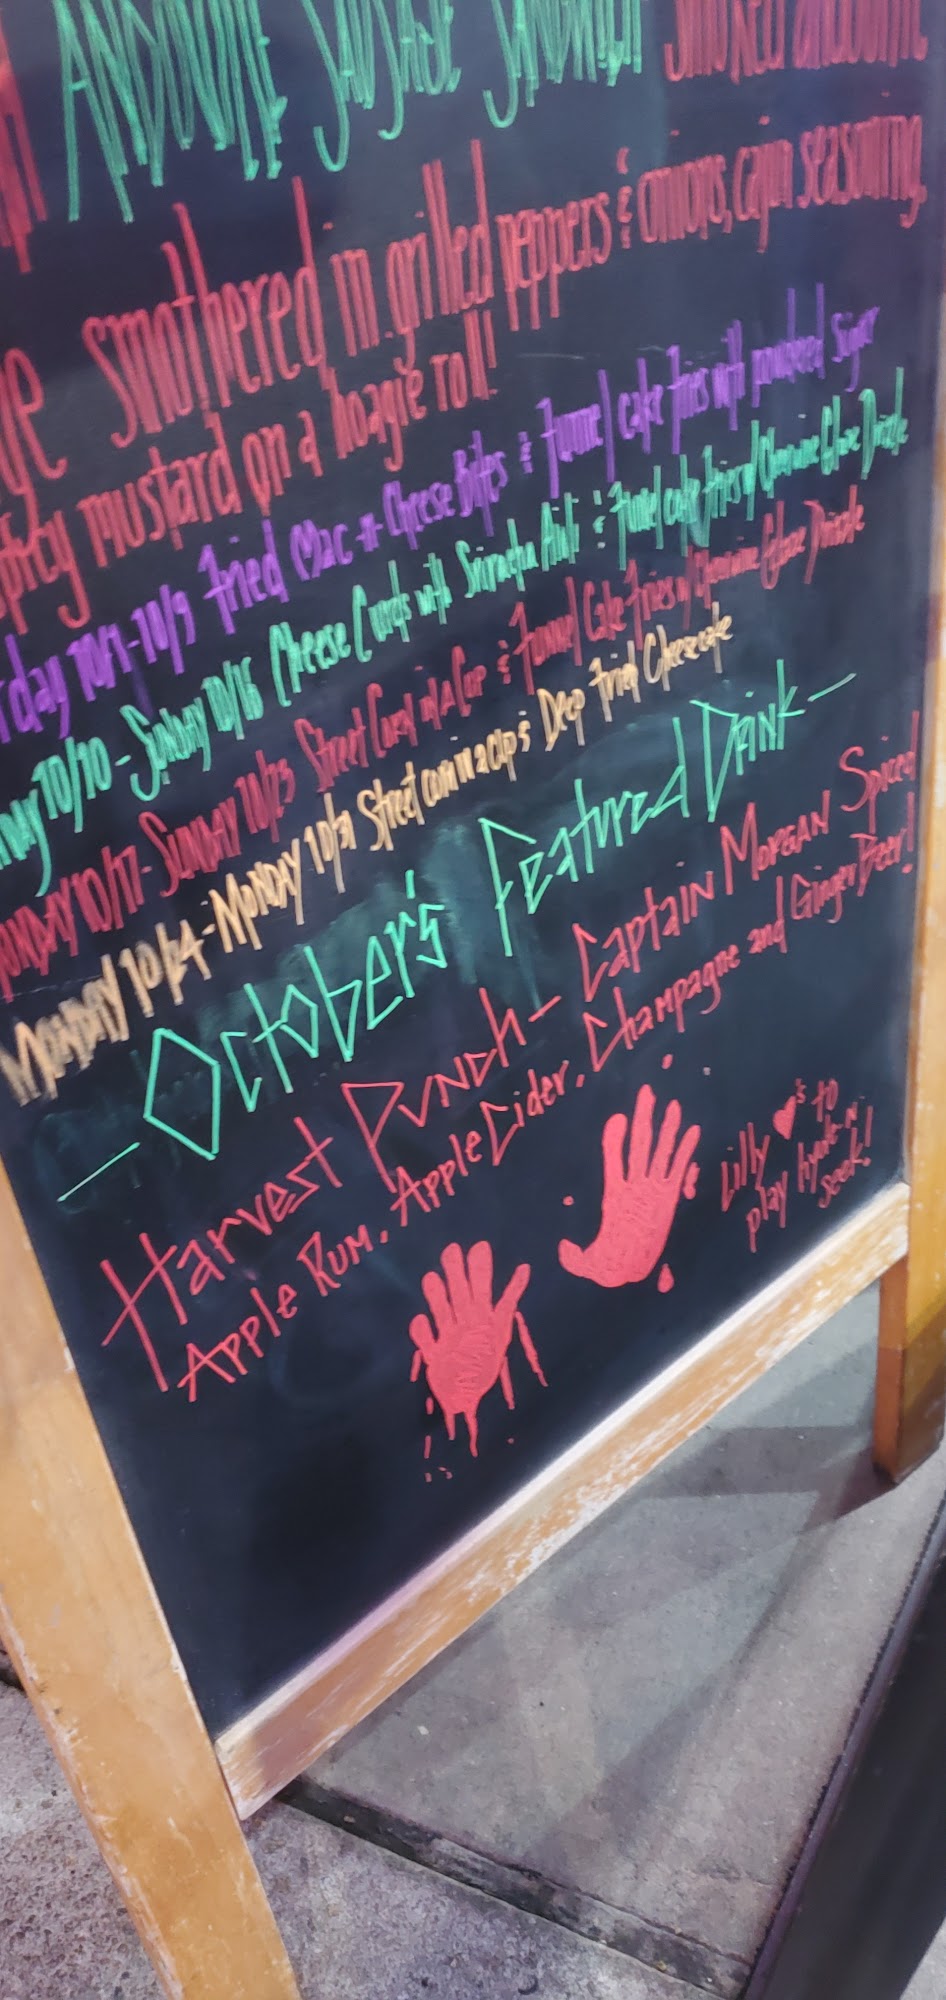 Andouille Sausage Sandwich Smoked andouille
smothered in grilled peppers & onions, cajun seasoning,
mustard on a hoagie roll!
10/7-10/9 Fried Mac-n-Cheese Bites & Funnel cake fries with powdered sugar
10/10-Sunday 10/16 Cheese Curds with Sriracha Aioli & Funnel cake fries w/ Glaze Drizzle
10/17-Sunday 10/23 Street Corn in A Cup & Funnel Cake Fries w/ Glaze Drizzle
Monday 10/24-Monday 10/31 Street corn in a cup & Deep Fried Cheesecake
-October's Featured Drink-
Harvest Punch- Captain Morgan Spiced
Apple Rum, Apple Cider, Champagne and Ginger Beer!
Lilly ♥'s to
play hyde-n-
seek!